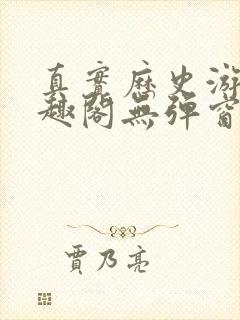 真實歷史游
趣閣無彈窗
賈乃亮